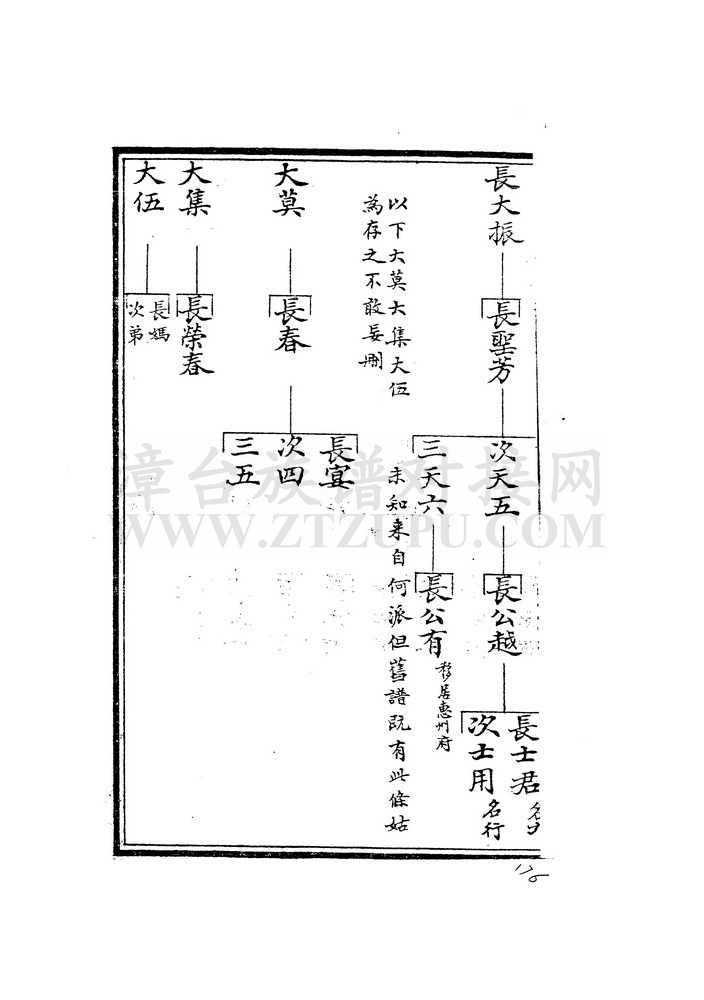 長大振
長聖芳
次天五
長公越
長士君
次士用
名行
三天六
長公有
移居惠州府
以下大莫大集大伍
未知来自何派但舊譜既有此條姑
為存之不敢妄刪
大莫
長春
長宴
次四
三五
大集
長榮春
大伍
長媽
次弟
漳台族谱对接网
WWW.ZTZUPU.COM